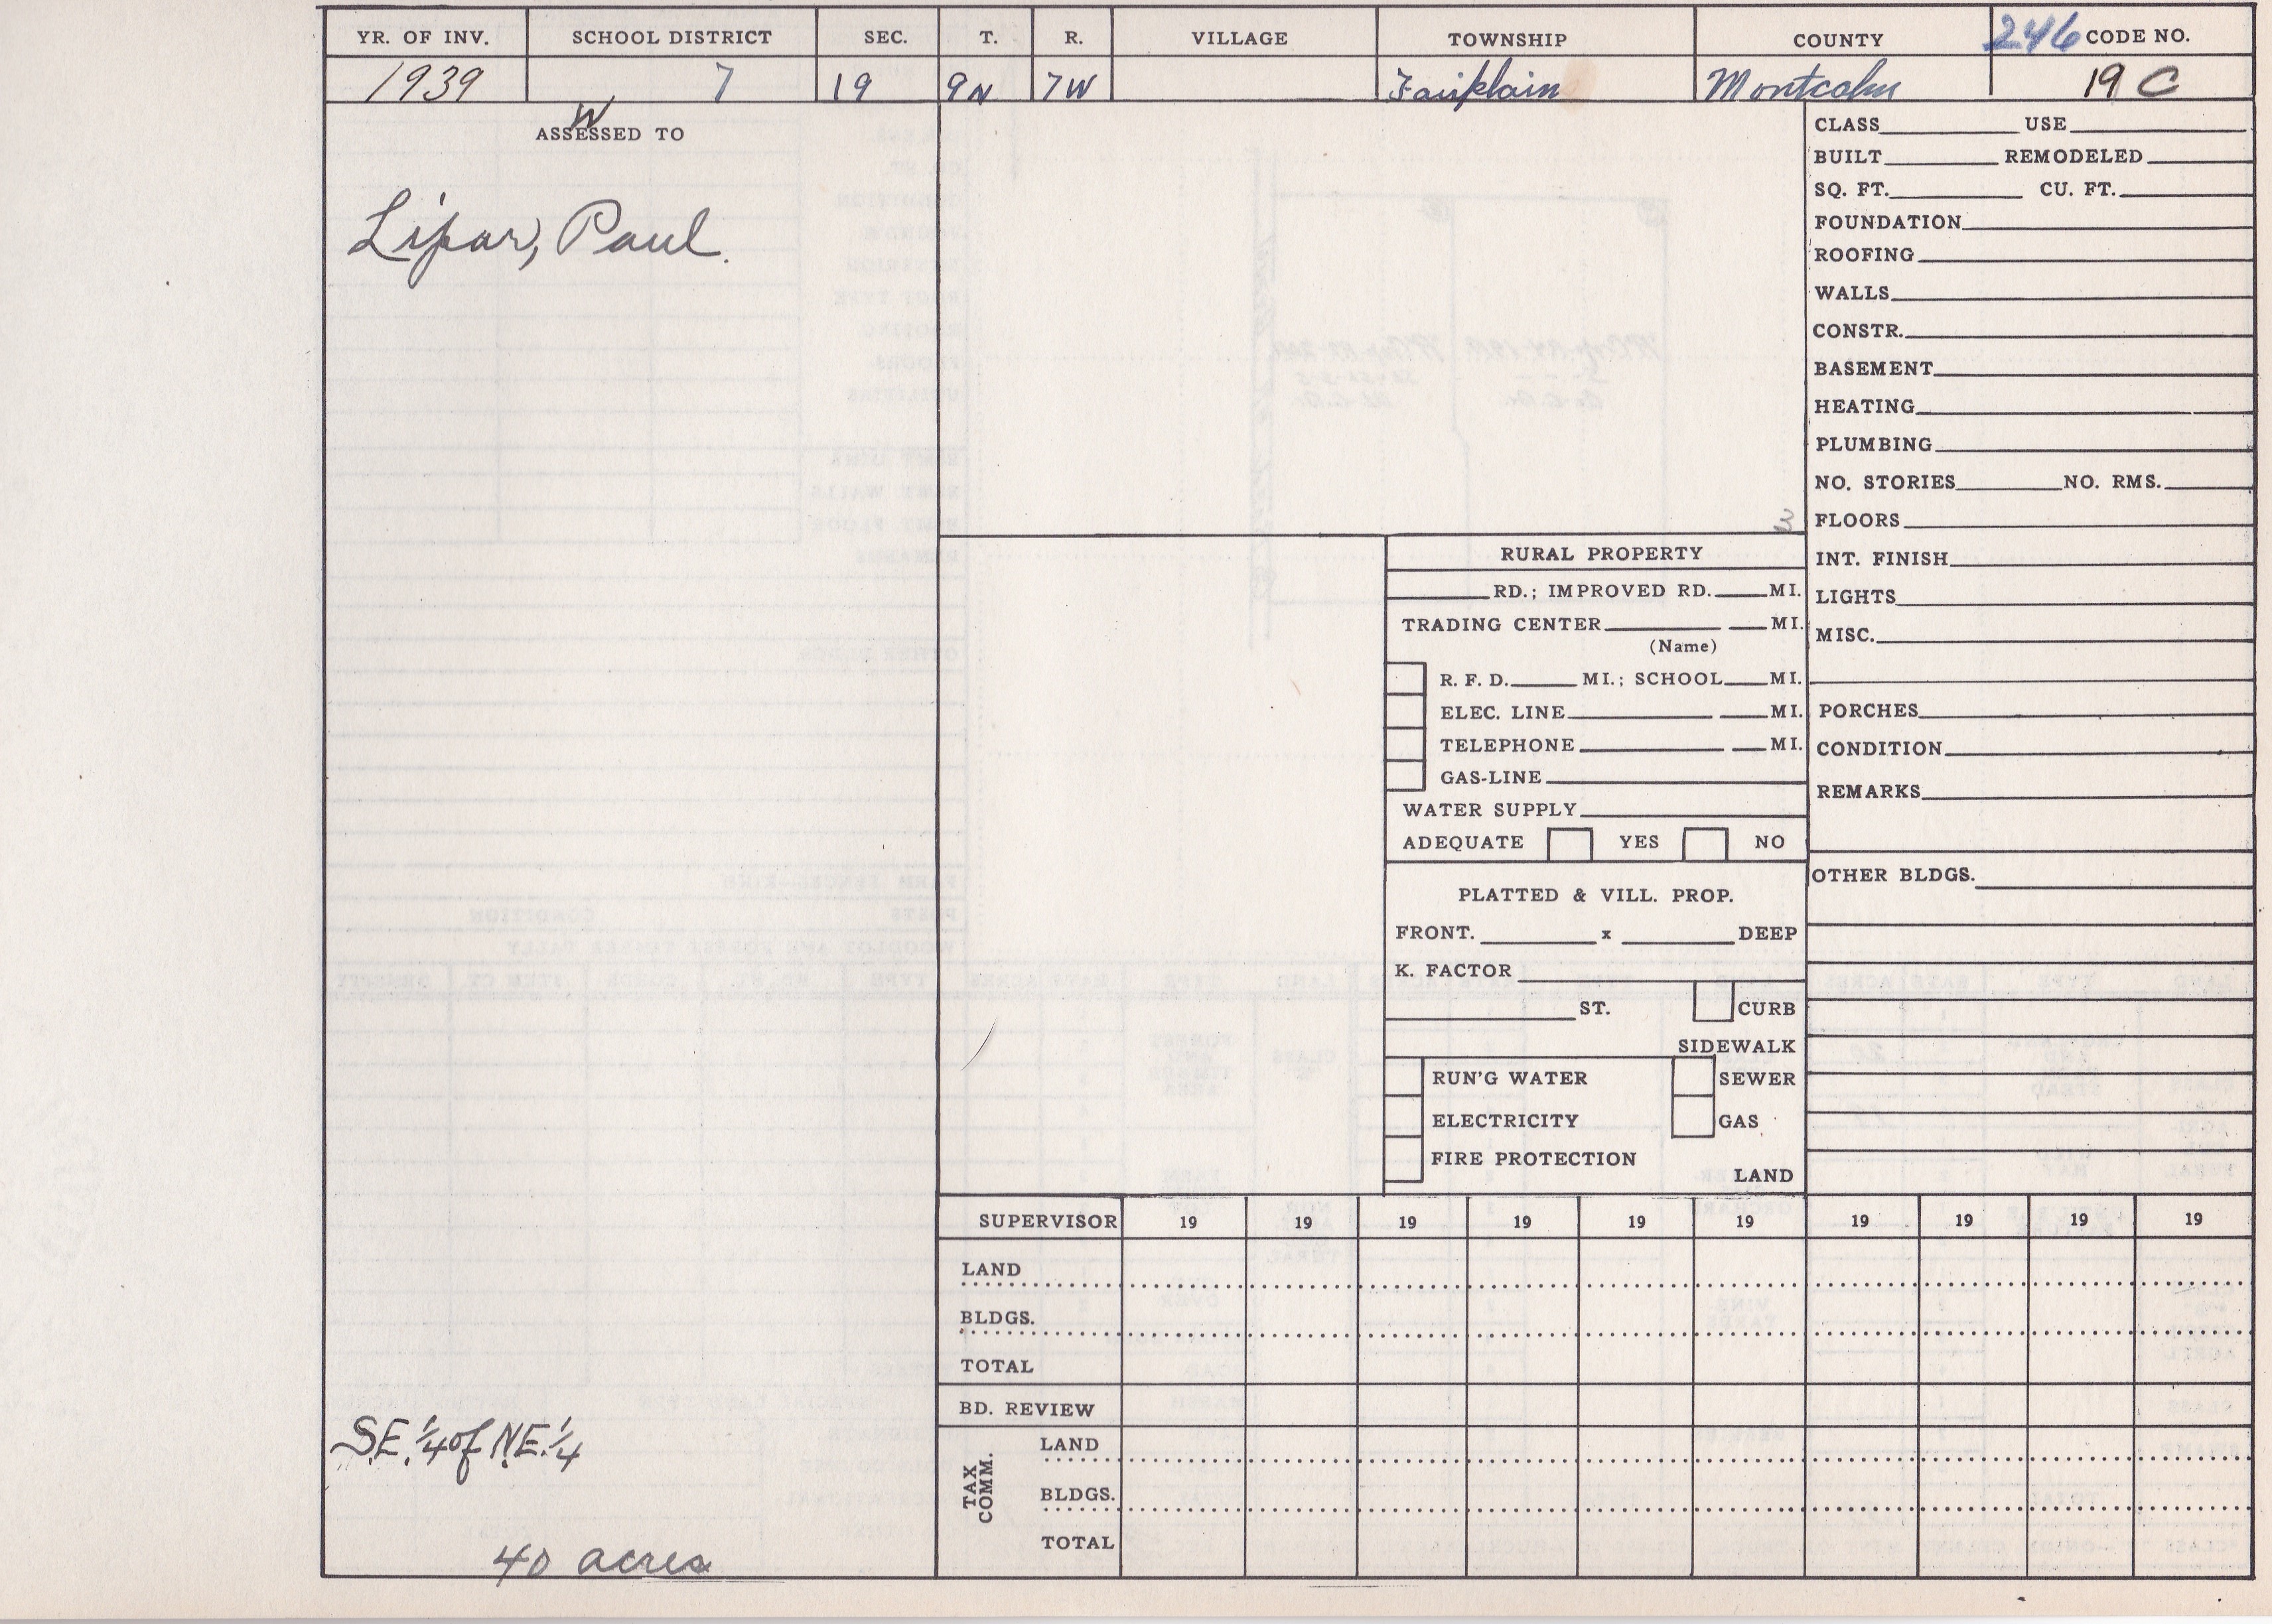 YR. OF INV. SCHOOL DISTRICT SEC. T. R. VILLAGE TOWNSHIP COUNTY 246 CODE NO.
1939 7 19 9N 7W Fairplain Montcalm 19 C
W
ASSESSED TO
Lipar, Paul.
SE 1/4 of N.E. 1/4
40 acres
CLASS USE
BUILT REMODELED
SQ. FT. CU. FT.
FOUNDATION
ROOFING
WALLS
CONSTR.
BASEMENT
HEATING
PLUMBING
NO. STORIES NO. RMS.
FLOORS
INT. FINISH
LIGHTS
MISC.
PORCHES
CONDITION
REMARKS
OTHER BLDGS.
RURAL PROPERTY
RD.; IMPROVED RD. MI.
TRADING CENTER MI.
(Name)
R. F. D. MI.; SCHOOL MI.
ELEC. LINE MI.
TELEPHONE MI.
GAS-LINE
WATER SUPPLY
ADEQUATE YES NO
PLATTED & VILL. PROP.
FRONT. x DEEP
K. FACTOR
ST. CURB
SIDEWALK
RUN'G WATER SEWER
ELECTRICITY GAS
FIRE PROTECTION
LAND
SUPERVISOR 19 19 19 19 19 19 19 19 19 19
LAND
BLDGS.
TOTAL
BD. REVIEW
TAX COMM.
LAND
BLDGS.
TOTAL